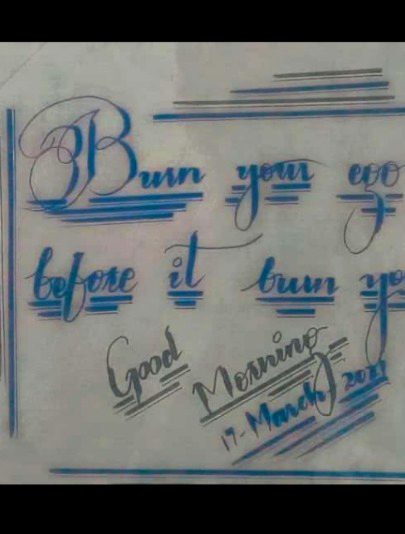 Burn your ego
before it burn yo
Good
Morning
17-March 2021